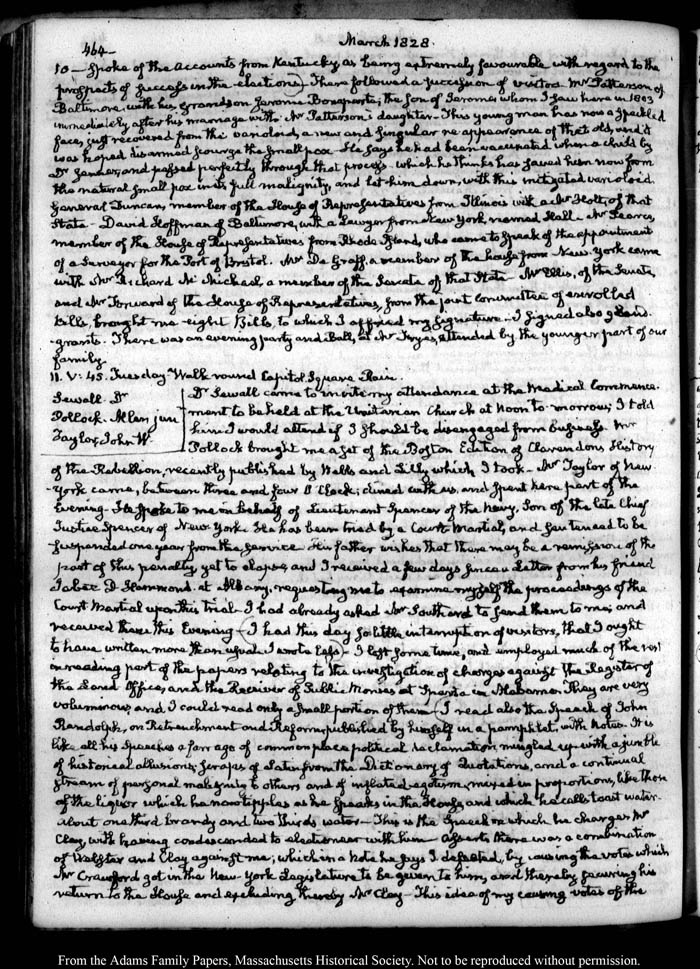 464-
March 1828.
10— Spoke of the accounts from Kentucky as being extremely favourable with regard to the
prospects of success in the elections) There followed a succession of visitors Mr Patterson of
Baltimore, with his grandson Jerome Bonaparte, the Son of Jerome whom I saw here in 1803
immediately after his marriage with Mr Patterson's daughter. This young man has now a speckled
face, just recovered from the varioloid, a new and singular re appearance of that old, and it
was hoped disarmed scourge the small pox. He says he had been vaccinated when a child by
Dr and passed perfectly through that process. which he thinks has saved him now from
the natural small pox in its full malignity, and let him down, with this mitigated varioloid.
General Duncan, member of the House of Representatives from Illinois with a Mr Holt, of that
State— David Hoffman of Baltimore, with a Lawyer from New York, named Hall— Mr Pearce,
member of the House of Representatives from Rhode Island, who came to speak of the appointment
of a Surveyor for the Port of Bristol. Mr De Graff, a member of the house from New-York came
with Mr Richard Mc Michael, a member of the Senate of that State— Mr Ellis, of the Senate,
and Mr Forward of the House of Representatives, from the joint Committee of enrolled
bills, brought me eight Bills, to which I affixed my signature. I signed also 9 Land
grants. There was an evening party and Ball, at Mr Frye's, attended by the younger part of our
family.
11. V: 45. Tuesday. Walk round Capitol Square. Rain.
Sewall. Dr
Pollock. Allan junr
Taylor, John W.
Dr Sewall came to invite my attendance at the Medical Commence-
ment to be held at the Unitarian Church at Noon to-morrow; I told
him I would attend if I should be disengaged from business. Mr
Pollock brought me a set of the Boston Edition of Clarendon's History
of the Rebellion, recently published by Wells and Lilly which I took— Mr Taylor of New-
York came, between three and four O'Clock; dined with us, and spent here part of the
Evening. He spoke to me in behalf of Lieutenant Spencer of the Navy, Son of the late Chief
Justice Spencer of New-York. He has been tried by a Court Martial, and sentenced to be
suspended one year from the service. His father wishes that there may be a remission of the
part of this penalty, yet to elapse, and I received a few days since a Letter from his friend
Jabez D. Hammond. at Albany, requesting me to examine myself the proceedings of the
Court Martial upon this trial. I had already asked Mr Southard to send them to me; and
received them this Evening— (I had this day so little interruption of visitors, that I ought
to have written more than usual. I wrote less)— I lost some time, and employed much of the rest
in reading part of the papers relating to the investigation of charges against the Register of
the Land Office, and the Receiver of Public Monies at Sparta in Alabama. They are very
voluminous, and I could read only a small portion of them. (I read also the Speech of John
Randolph, on Retrenchment and Reform, published by himself in a pamphlet, with Notes. It is
like all his speeches a farrago of commonplace political declamation, mingled up with a jumble
of historical allusions, scraps of Latin from the Dictionary of Quotations, and a continual
stream of personal malignity to others and of inflated egotism, mixed in proportions, like those
of the liquor which he now tipples as he speaks in the House, and which he calls toast water—
about one third brandy and two thirds water— This is the Speech in which he charges Mr
Clay, with having condescended to electioneer with him. Asserts there was a combination
of Webster and Clay against me; which in a Note he says I defeated, by causing the votes which
Mr Crawford got in the New-York Legislature to be given to him, and thereby securing his
return to the House and excluding thereby Mr Clay— This idea of my causing votes of the
From the Adams Family Papers, Massachusetts Historical Society. Not to be reproduced without permission.